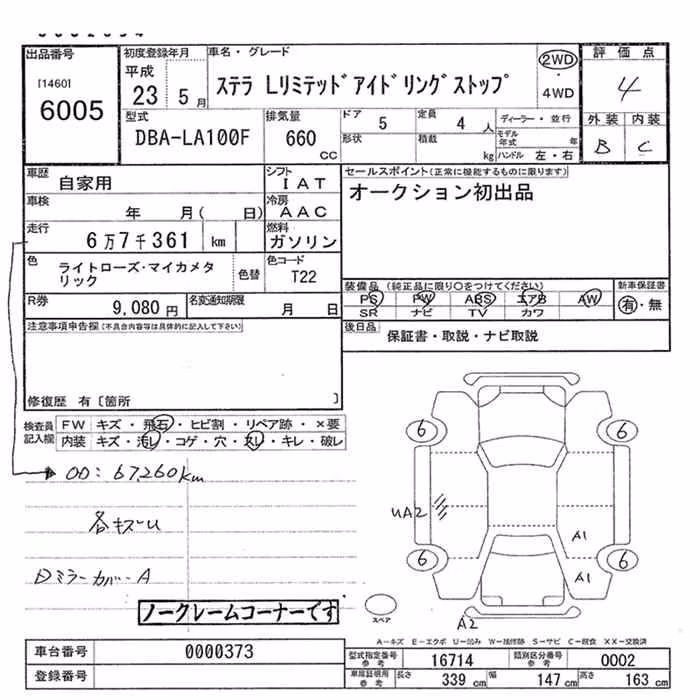 出品番号 初度登録年月 車名・グレード 評価点
[1460] 平成 2WD
6005 23 5月 ステラ Lリミテッドアイドリングストップ ・ 4
4WD
型式 排気量 ドア 5 定員 4人 ディーラー・並行 外装 内装
DBA-LA100F 660 形状 積載 モデル年式 年 B C
CC kg ハンドル 左・右
車歴 自家用 シフト IAT セールスポイント(正常に機能するものに限ります)
車検 年 月( 日) 冷房 AAC オークション初出品
走行 6万7千361 km 燃料 ガソリン
色 ライトローズ・マイカメタリック 色替 色コード T22
装備品(純正品に限り○をつけてください) 新車保証書
PS PW ABS エアB AW 有・無
R券 9,080円 名変通知期限 月 日 SR ナビ TV カワ
注意事項申告欄(不具合内容等は具体的に記入して下さい) 後日品 保証書・取説・ナビ取説
修復歴 有〔箇所 〕
検査員記入欄 FW キズ・飛石・ヒビ割・リペア跡・×要
内装 キズ・汚レ・コゲ・穴・スレ・キレ・破レ
6 6
OD:67,260km
UA2
各キズU A1
6 6
ミラーカバーA A1
ノークレームコーナーです
スペア A2
A-キズ E-エクボ U-凹み W-補修跡 S-サビ C-腐食 XX-交換済
車台番号 0000373 型式指定番号 参考 16714 類別区分番号 参考 0002
登録番号 車庫証明用 参考 長さ 339 cm 幅 147 cm 高さ 163 cm